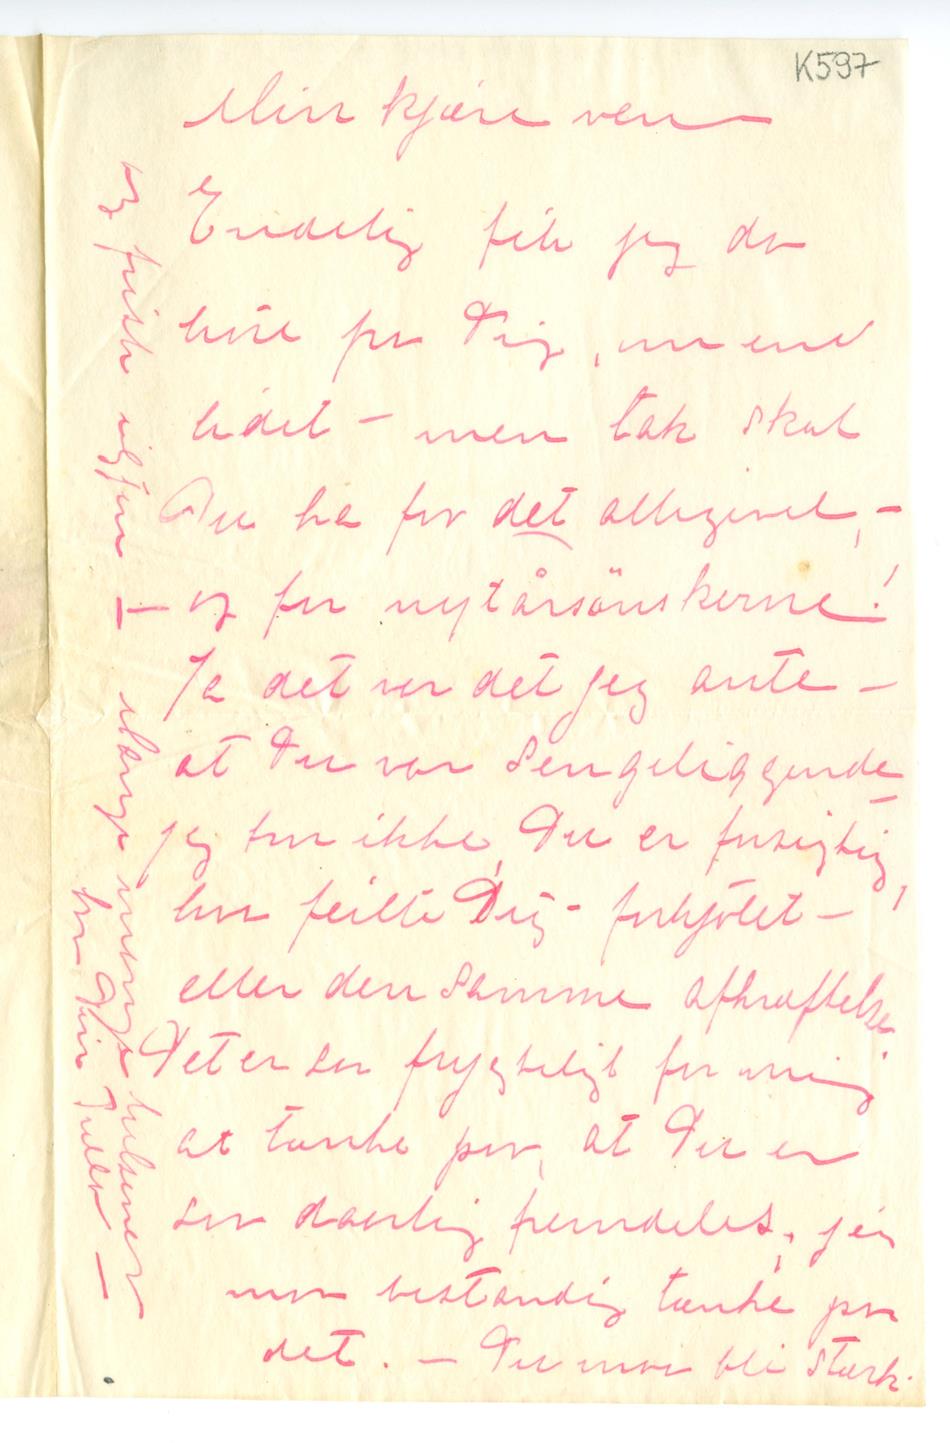 K597
Min kjære ven
Endelig fik jeg da
høre fra Dig, om end
lidet – men tak skal
Du ha for det alligevel, –
og for nytårsönskerne!
Ja det var det jeg ante –
at Du var sengeliggende –
jeg tror ikke, Du er forsigtig,
hva feilte Dig – forkjölet –
eller den samme afkræftelse.
Det er saa frygteligt for mig
at tænke paa, at Du er
saa daarlig fremdeles, jeg
maa bestandig tænke paa
det. – Du maa bli stærk
og frisk igjen –
Mange mange hilsener
fra Din Tulla –